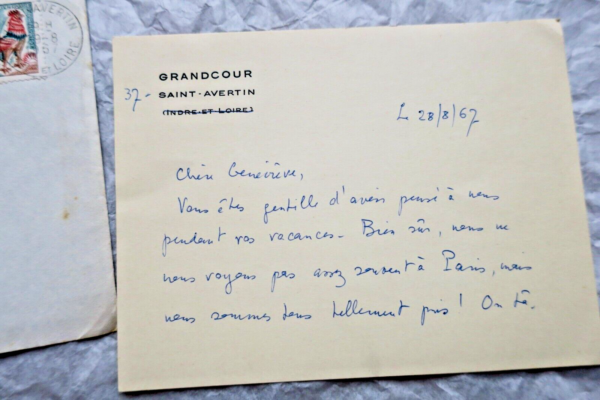 AVERTIN
LOIRE
GRANDCOUR
37- SAINT-AVERTIN
(INDRE-ET-LOIRE)
L 28/8/67
Chère Geneviève,
Vous êtes gentille d'avoir pensé à nous
pendant vos vacances - Bien sûr, nous ne
nous voyons pas assez souvent à Paris, mais
nous sommes tous tellement pris! On